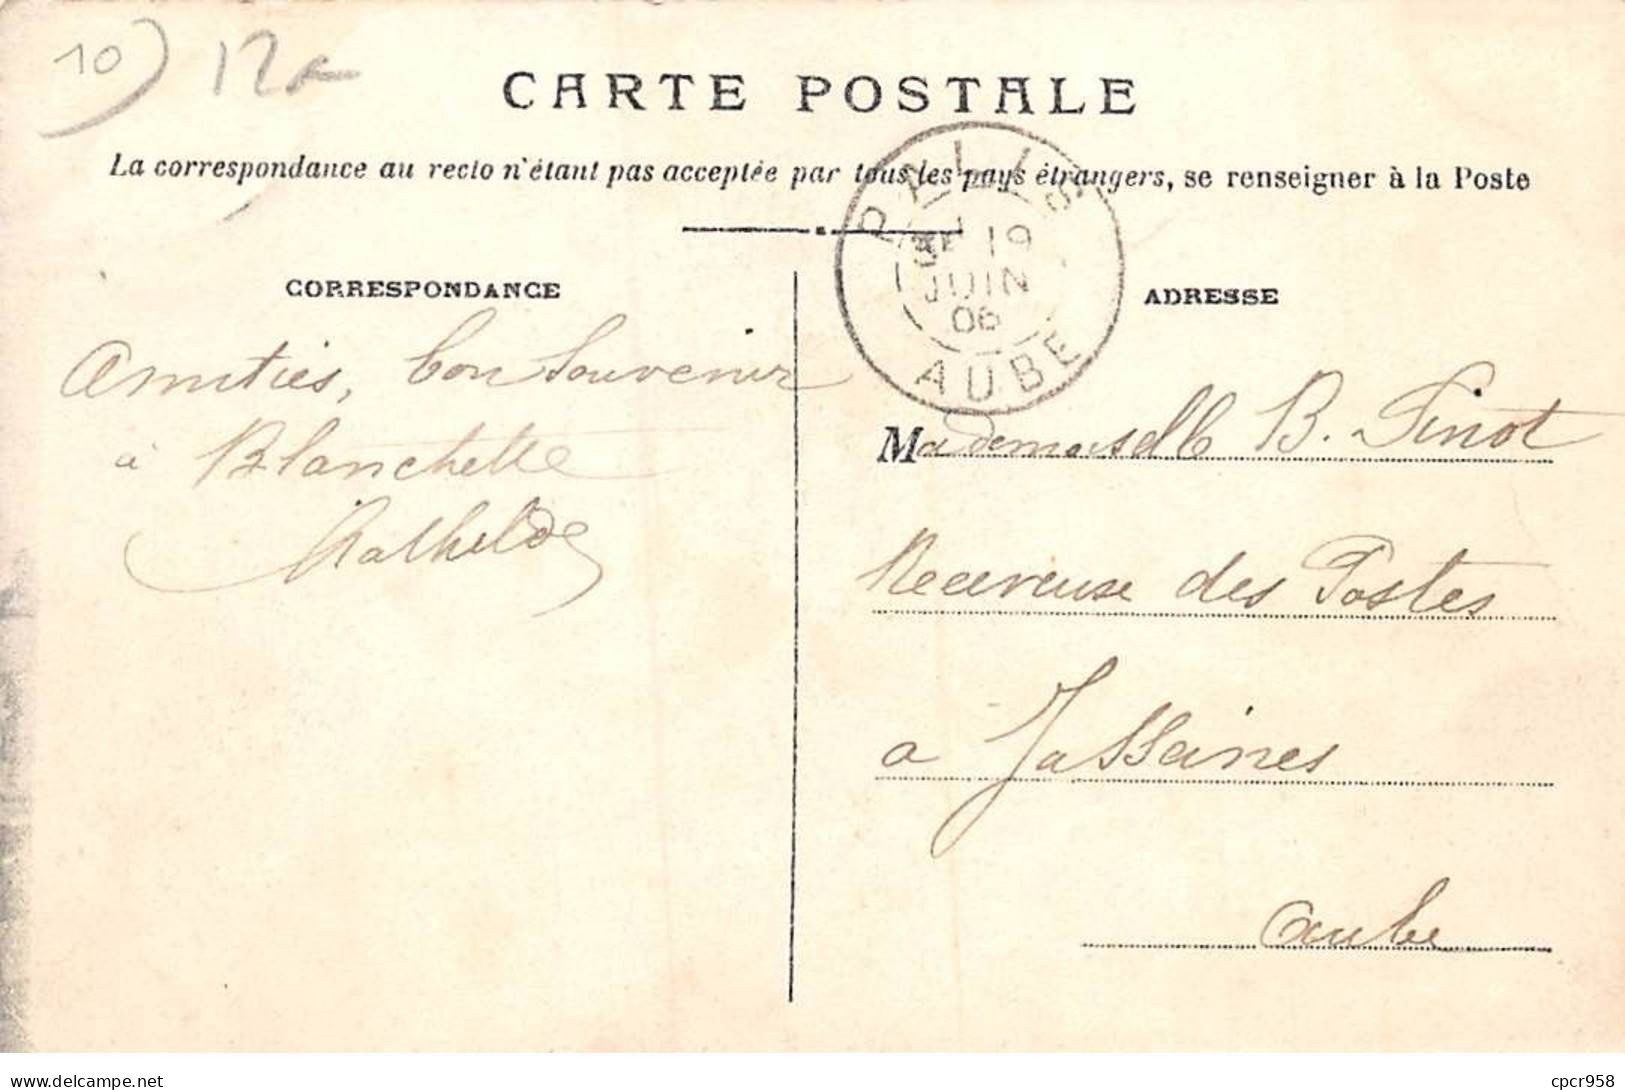 10) 12
CARTE POSTALE
La correspondance au recto n'étant pas acceptée par tous les pays étrangers, se renseigner à la Poste
19
JUIN
06
AUBE
CORRESPONDANCE
ADRESSE
Amitiés, bon Souvenir
à Blanchette
Mathilde
Mademoiselle B. Pinot
Receveuse des Postes
a Jasseines
Aube
delcampe.net
cpcr958